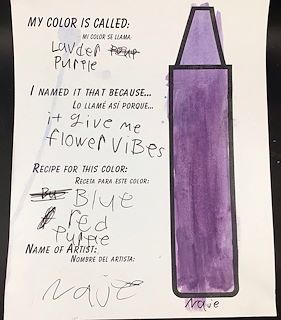 MY COLOR IS CALLED:
MI COLOR SE LLAMA:
Lavder
purple
I NAMED IT THAT BECAUSE...
LO LLAMÉ ASÍ PORQUE...
it give me
flower vibes
RECIPE FOR THIS COLOR:
RECETA PARA ESTE COLOR:
Blue
red
purple
NAME OF ARTIST:
NOMBRE DEL ARTISTA:
Naje
Naje